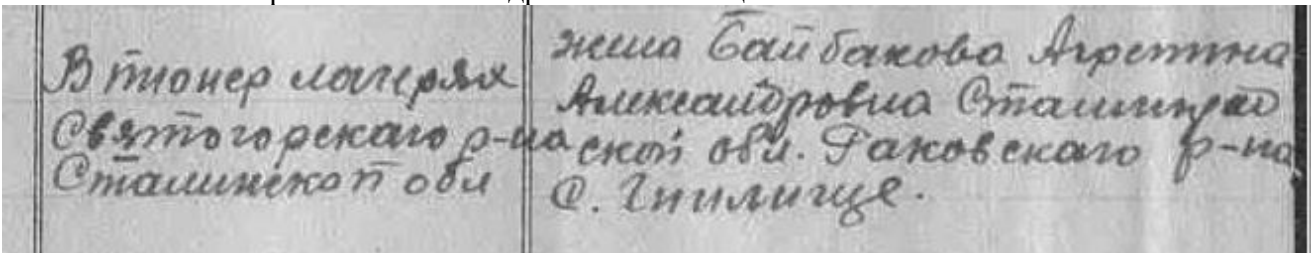 В пионер лагерях
Святогорскаго р-на
Сталинской обл
жена Байбакова Агрепина
Александровна Сталинград
ской обл. Раковскаго р-на
С. Гнилище.